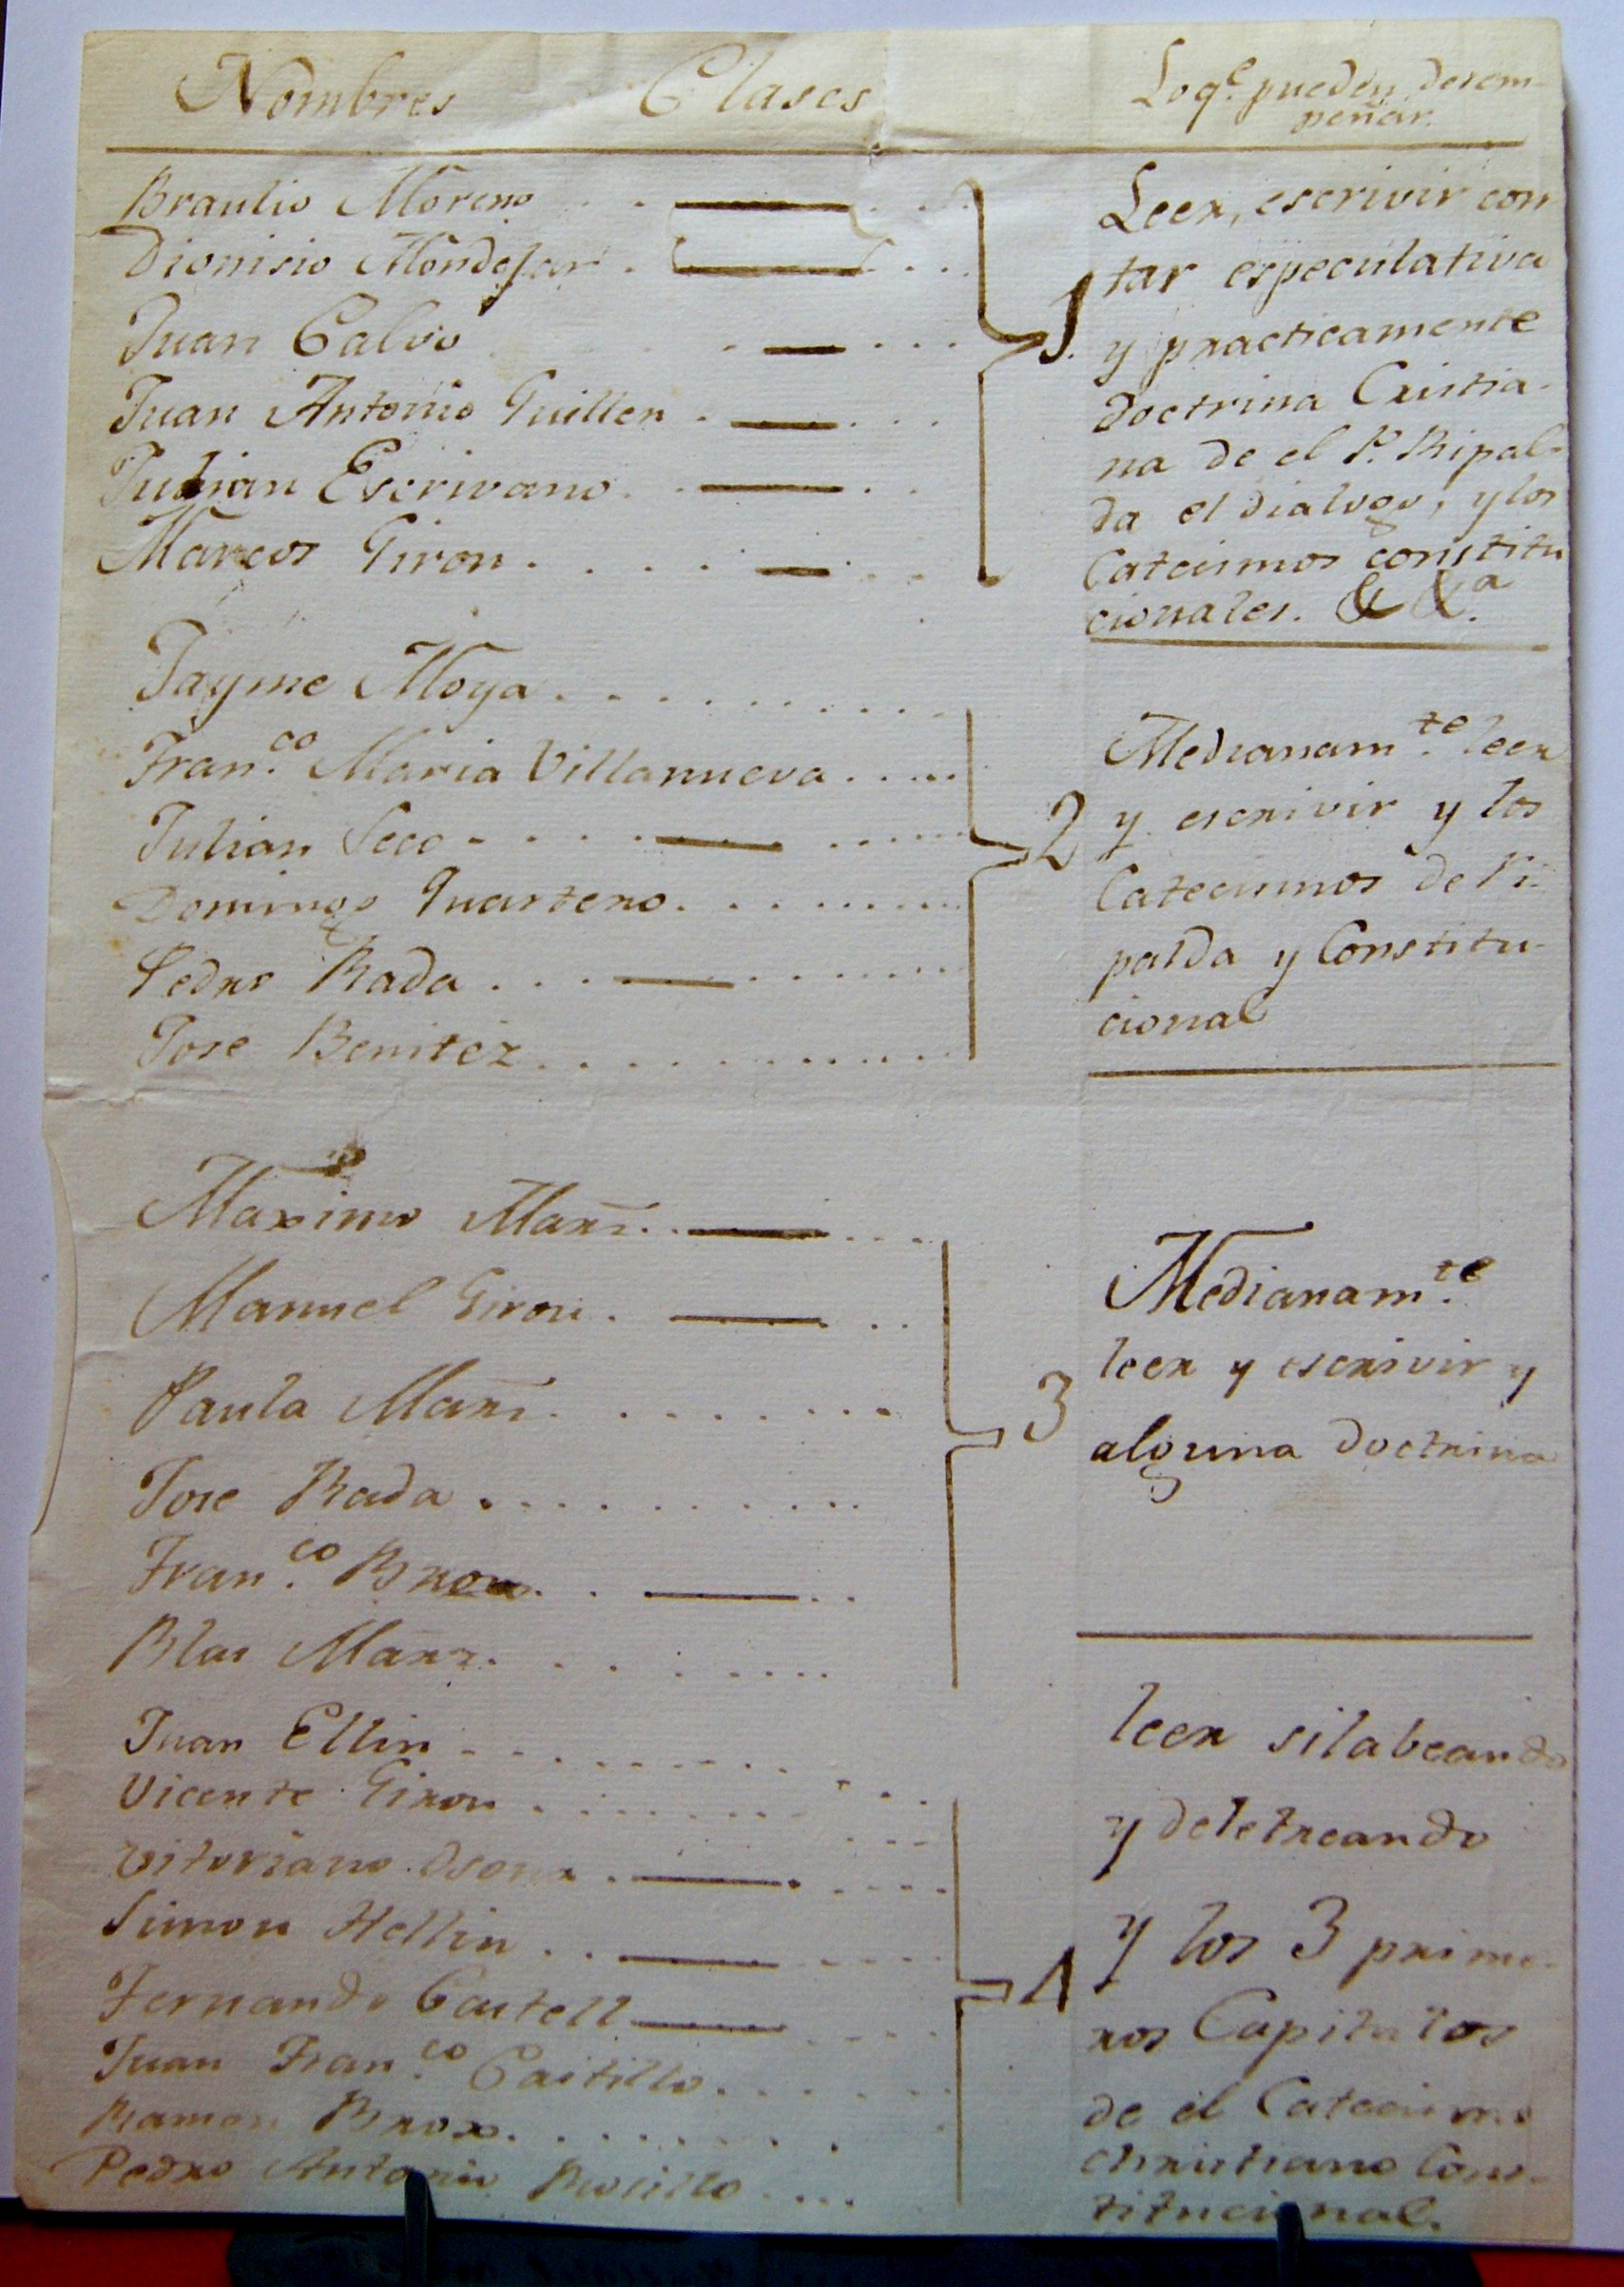 Nombres Clases Lo q.e pueden desem-
peñar.
Braulio Moreno
Dionisio Mondejar
Juan Calvo
Juan Antonio Guillen
Julian Escrivano
Marcos Giron
1.
Leer, escrivir con
tar especulativa
y practicamente
doctrina Cristia-
na de el P. Ripal-
da el dialogo, y los
Catecismos constitu
cionales. & &.a
Jayme Moya
Fran.co Maria Villanueva
Julian Seco
Domingo Quartero
Pedro Rada
Jose Benitez
2
Medianam.te leer
y escrivir y los
Catecismos de Ri-
palda y Constitu-
cional
Maximo Marz.
Manuel Giron
Paula Marz.
Jose Rada
Fran.co Brox
Blas Marz.
3
Medianam.te
leer y escrivir y
alguna doctrina
Juan Ellin
Vicente Giron
Vitoriano
Simon Hellin
Fernando Castell
Juan Fran.co Castillo
Ramon Brox
Pedro Antonio
4
leer silabeando
y deletreando
y los 3 prime-
ros Capitulos
de el Catecismo
Christiano Cons-
titucional.